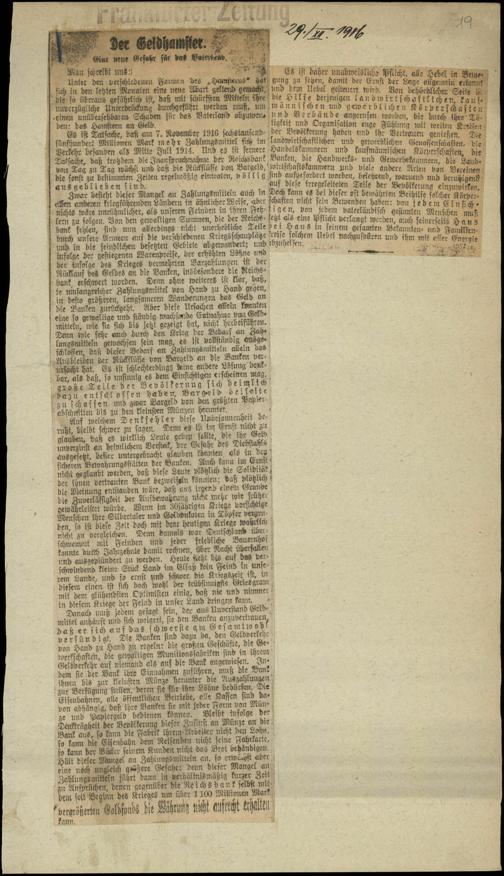 Frankfurter Zeitung
29./XI. 1916
19
Der Geldhamster.
Eine neue Gefahr für das Vaterland.
Man schreibt uns:
Unter den verschiedenen Formen des „Hamsterns“ hat
sich in den letzten Monaten eine neue Abart geltend gemacht,
die so überaus gefährlich ist, daß mit schärfsten Mitteln ihre
unverzügliche Unterdrückung durchgeführt werden muß, um
einen unübersehbaren Schaden für das Vaterland abzuwen-
den: das Hamstern an Geld.
Es ist Tatsache, daß am 7. November 1916 sechstausend-
fünfhundert Millionen Mark mehr Zahlungsmittel sich im
Verkehr befanden als Mitte Juli 1914. Und es ist fernere
Tatsache, daß trotzdem die Inanspruchnahme der Reichsbank
von Tag zu Tag wächst und daß die Rückflüsse von Bargeld,
die sonst zu bestimmten Zeiten regelmäßig eintraten, völlig
ausgeblieben sind.
Zwar besteht dieser Mangel an Zahlungsmitteln auch in
allen anderen kriegführenden Ländern in ähnlicher Weise, aber
nichts wäre unrühmlicher, als unseren Feinden in ihren Feh-
lern zu folgen. Von den gewaltigen Summen, die der Reichs-
bank fehlen, sind nun allerdings nicht unerhebliche Teile
durch unsere Armeen auf die verschiedenen Kriegsschauplätze
und in die feindlichen besetzten Gebiete abgewandert; und
infolge der gestiegenen Warenpreise, der erhöhten Löhne und
der infolge des Krieges vermehrten Barzahlungen ist der
Rücklauf des Geldes an die Banken, insbesondere die Reichs-
bank erschwert worden. Denn ohne weiteres ist klar, daß,
je umfangreicher Zahlungsmittel von Hand zu Hand gehen,
in desto größeren, langsameren Wanderungen das Geld an
die Banken zurückgeht. Aber diese Ursachen allein konnten
eine so gewaltige und ständig wachsende Entnahme von Geld-
mitteln, wie sie sich bis jetzt gezeigt hat, nicht herbeiführen.
Denn wie sehr auch durch den Krieg der Bedarf an Zah-
lungsmitteln gewachsen sein mag, es ist vollständig ausge-
schlossen, daß dieser Bedarf an Zahlungsmitteln allein das
Ausbleiben der Rückflüsse von Bargeld an die Banken ver-
ursacht hat. Es ist schlechterdings keine andere Lösung denk-
bar, als daß, so unsinnig es dem Einsichtigen erscheinen mag,
große Teile der Bevölkerung sich heimlich
dazu entschlossen haben, Bargeld beiseite
zu schaffen und zwar Bargeld von den größten Papier-
abschnitten bis zu den kleinsten Münzen herunter.
Auf welchem Denkfehler diese Unbesonnenheit be-
ruht, bleibt schwer zu sagen. Denn es ist im Ernst nicht zu
glauben, daß es wirklich Leute geben sollte, die ihr Geld
unverzinst in heimlichem Versteck, der Gefahr des Diebstahls
ausgesetzt, besser untergebracht glauben könnten als in den
sicheren Bewahrungsstätten der Banken. Auch kann im Ernst
nicht geglaubt werden, daß diese Leute plötzlich die Solidität
der ihnen vertrauten Bank bezweifeln könnten; daß plötzlich
die Meinung entstanden wäre, daß aus irgend einem Grunde
die Zuverlässigkeit der Aufbewahrung nicht mehr wie früher
gewährleistet würde. Wenn im 30jährigen Kriege vorsichtige
Menschen ihre Silbertaler und Goldgulden in Töpfen vergru-
ben, so ist diese Zeit doch mit dem heutigen Kriege wahrlich
nicht zu vergleichen. Denn damals war Deutschland über-
schwemmt mit Feinden und jeder friedliche Bauernhof
konnte durch Jahrzehnte damit rechnen, über Nacht überfallen
und ausgeplündert zu werden. Heute steht bis auf das ver-
schwindend kleine Stück Land im Elsaß kein Feind in unse-
rem Lande, und so ernst und schwer die Kriegszeit ist, in
diesem einen ist sich doch wohl der trübsinnigste Griesgram
mit dem glühendsten Optimisten einig, daß nie und nimmer
in diesem Kriege der Feind in unser Land dringen kann.
Danach muß jedem gesagt sein, der aus Unverstand Geld-
mittel anhäuft und sich weigert, sie den Banken anzuvertrauen,
daß er sich auf das schwerste am Gesamtwohl
versündigt. Die Banken sind dazu da, den Geldverkehr
von Hand zu Hand zu regeln: die großen Geschäfte, die Ge-
werkschaften, die gewaltigen Munitionsfabriken sind in ihrem
Geldverkehr auf niemand als auf die Bank angewiesen. In-
dem sie der Bank ihre Einnahmen zuführen, muß die Bank
ihnen bis zur kleinsten Münze herunter die Auszahlungen
zur Verfügung stellen, deren sie für ihre Löhne bedürfen. Die
Eisenbahnen, alle öffentlichen Betriebe, alle Kassen sind da-
von abhängig, daß ihre Banken sie mit jeder Form von Mün-
ze und Papiergeld bedienen konnten. Bleibt infolge der
Denkträgheit der Bevölkerung dieser Zufluß an Münze an die
Bank aus, so kann die Fabrik ihrem Arbeiter nicht den Lohn,
so kann die Eisenbahn dem Reisenden nicht seine Fahrkarte,
so kann der Bäcker seinen Kunden nicht das Brot behändigen.
Hält dieser Mangel an Zahlungsmitteln an, so erwächst aber
eine noch ungleich größere Gefahr: denn dieser Mangel an
Zahlungsmitteln führt dann in verhältnismäßig kurzer Zeit
zu Ansprüchen, denen gegenüber die Reichsbank selbst mit
dem seit Beginn des Krieges um über 1 100 Millionen Mark
vergrößerten Goldfonds die Währung nicht aufrecht erhalten
kann.
Es ist daher unabweisliche Pflicht, alle Hebel in Bewe-
gung zu setzen, damit der Ernst der Lage allgemein erkannt
und dem Uebel gesteuert wird. Von behördlicher Seite ist
die Hilfe derjenigen landwirtschaftlichen, kauf-
männischen und gewerblichen Körperschaften
und Verbände angerufen worden, die durch ihre Tä-
tigkeit und Organisation enge Fühlung mit weiten Kreisen
der Bevölkerung haben und ihr Vertrauen genießen. Die
landwirtschaftlichen und gewerblichen Genossenschaften, die
Handelskammern und kaufmännischen Körperschaften, die
Banken, die Handwerks- und Gewerbekammern, die Land-
wirtschaftskammern und viele andere Arten von Vereinen
sind aufgefordert worden, belehrend, warnend und beruhigend
auf diese irregeleiteten Teile der Bevölkerung einzuwirken.
Doch kann es bei dieser oft bewährten Beihilfe solcher Körper-
schaften nicht sein Bewenden haben: von jedem Einsich-
tigen, von jedem vaterländisch gesinnten Menschen muß
jetzt als eine Pflicht verlangt werden, auch seinerseits Haus
bei Haus in seinem gesamten Bekannten- und Familien-
kreise solchem Uebel nachzuspüren und ihm mit aller Energie
abzuhelfen.